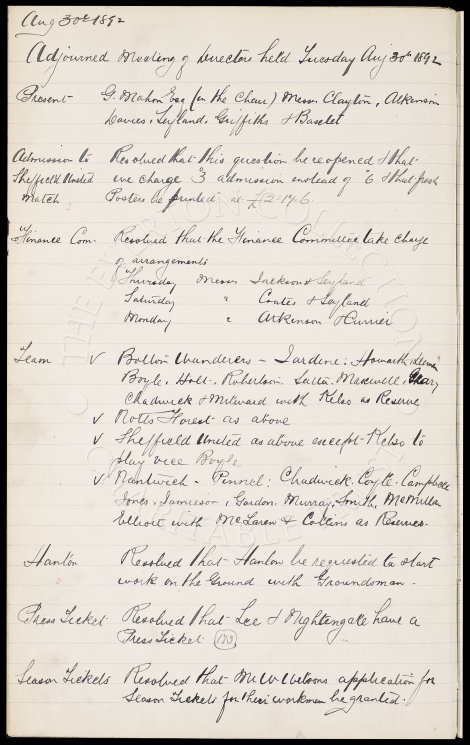 Aug 30th 1892
Adjourned Meeting of Directors held Tuesday Aug 30th 1892
Present G. Mahon Esq (in the Chair) Messrs Clayton, Atkinson
Davies, Leyland, Griffiths & Baselet
Admission to Resolved that this question be reopened & that
Sheffield United we charge 3 admission instead of 6 & that fresh
Match Posters be printed at £2.17.6
Finance Com. Resolved that the Finance Committee take charge
of arrangements
Thursday Messrs Jackson & Leyland
Saturday " Coates & Leyland
Monday " Atkinson & Currier
Team v Bolton Wanderers - Jardine, Howarth,
Boyle, Holt, Robertson, Latta, Maxwell, Geary
Chadwick & Milward with Kelso as Reserve
v Notts Forest - as above
v Sheffield United as above except Kelso to
play vice Boyle
v Nantwich - Pinnell, Chadwick, Coyle, Campbell
Jones, Jamieson, Gordon, Murray, Smith, McMillan
Elliott with McLaren & Collins as Reserves.
Hanlon Resolved that Hanlon be requested to start
work on the Ground with Groundsman.
Press Ticket Resolved that Lee & Nightengate have a
Press Ticket (173)
Season Tickets Resolved that application for
Season Tickets for their workmen be granted.
THE EVERTON COLLECTION
CHARITABLE